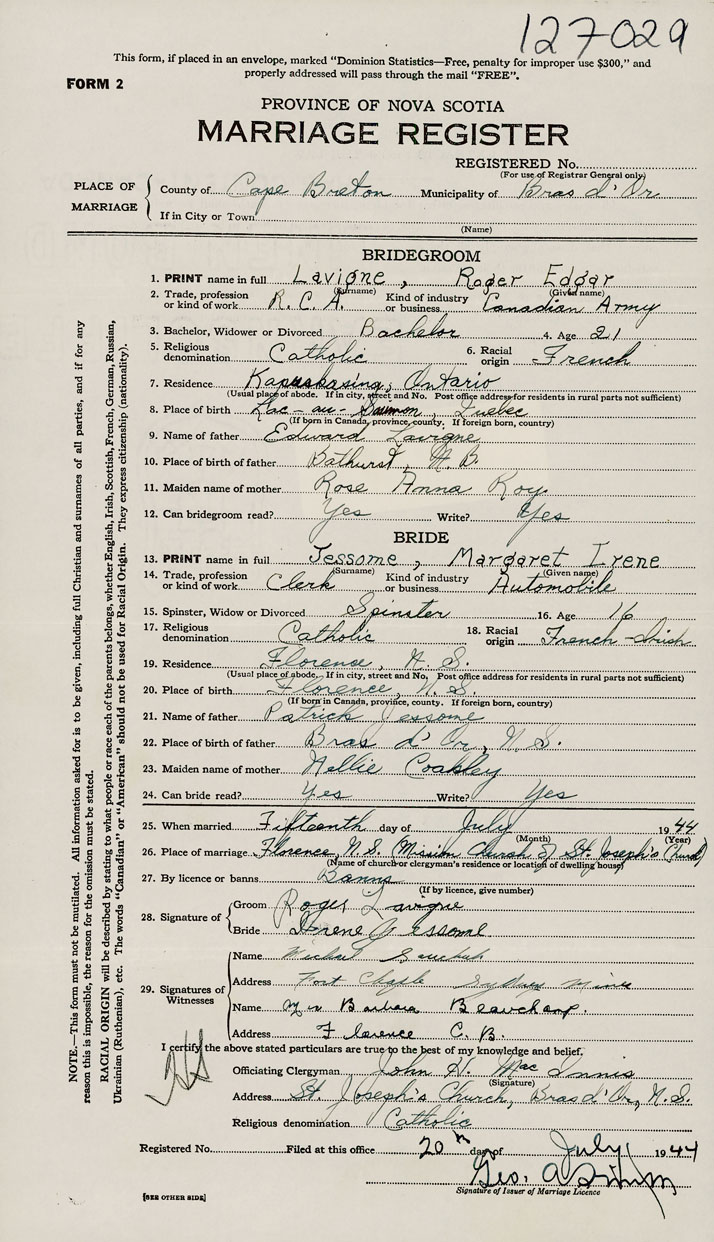 127029
This form, if placed in an envelope, marked "Dominion Statistics—Free, penalty for improper use $300," and
properly addressed will pass through the mail "FREE".
FORM 2
PROVINCE OF NOVA SCOTIA
MARRIAGE REGISTER
REGISTERED No.
(For use of Registrar General only)
PLACE OF MARRIAGE
County of Cape Breton Municipality of Bras d'Or
If in City or Town
(Name)
BRIDEGROOM
1. PRINT name in full Lavigne, Roger Edgar
(Surname) (Given name)
2. Trade, profession or kind of work R.C.A. Kind of industry or business Canadian Army
3. Bachelor, Widower or Divorced Bachelor 4. Age 21
5. Religious denomination Catholic 6. Racial origin French
7. Residence Kapuskasing, Ontario
(Usual place of abode. If in city, street and No. Post office address for residents in rural parts not sufficient)
8. Place of birth Lac-au-Saumon, Quebec
(If born in Canada, province, county. If foreign born, country)
9. Name of father Edward Lavigne
10. Place of birth of father Bathurst, N.B.
11. Maiden name of mother Rose Anna Roy
12. Can bridegroom read? Yes Write? Yes
BRIDE
13. PRINT name in full Jessome, Margaret Irene
(Surname) (Given name)
14. Trade, profession or kind of work Clerk Kind of industry or business Automobile
15. Spinster, Widow or Divorced Spinster 16. Age 16
17. Religious denomination Catholic 18. Racial origin French-Irish
19. Residence Florence, N.S.
(Usual place of abode. If in city, street and No. Post office address for residents in rural parts not sufficient)
20. Place of birth Florence, N.S.
(If born in Canada, province, county. If foreign born, country)
21. Name of father Patrick Jessome
22. Place of birth of father Bras d'Or, N.S.
23. Maiden name of mother Nellie Coakley
24. Can bride read? Yes Write? Yes
25. When married Fifteenth day of July 1944
(Month) (Year)
26. Place of marriage Florence, N.S. (Mission Church of St. Joseph's Church)
(Name of church or clergyman's residence or location of dwelling house)
27. By licence or banns Banns
(If by licence, give number)
28. Signature of
Groom Roger Lavigne
Bride Irene Jessome
29. Signatures of Witnesses
Name Michael
Address Sydney Mines
Name Mrs Barbara Beauchamp.
Address Florence C.B.
I certify the above stated particulars are true to the best of my knowledge and belief.
Officiating Clergyman John H. MacInnis
(Signature)
Address St. Joseph's Church, Bras d'Or, N.S.
Religious denomination Catholic
Registered No. Filed at this office 20th day of July 1944
Geo. A.
Signature of Issuer of Marriage Licence
[SEE OTHER SIDE]
NOTE.—This form must not be mutilated. All information asked for is to be given, including full Christian and surnames of all parties, and if for any
reason this is impossible, the reason for the omission must be stated.
RACIAL ORIGIN will be described by stating to what people or race each of the parents belongs, whether English, Irish, Scottish, French, German, Russian,
Ukrainian (Ruthenian), etc. The words "Canadian" or "American" should not be used for Racial Origin. They express citizenship (nationality).